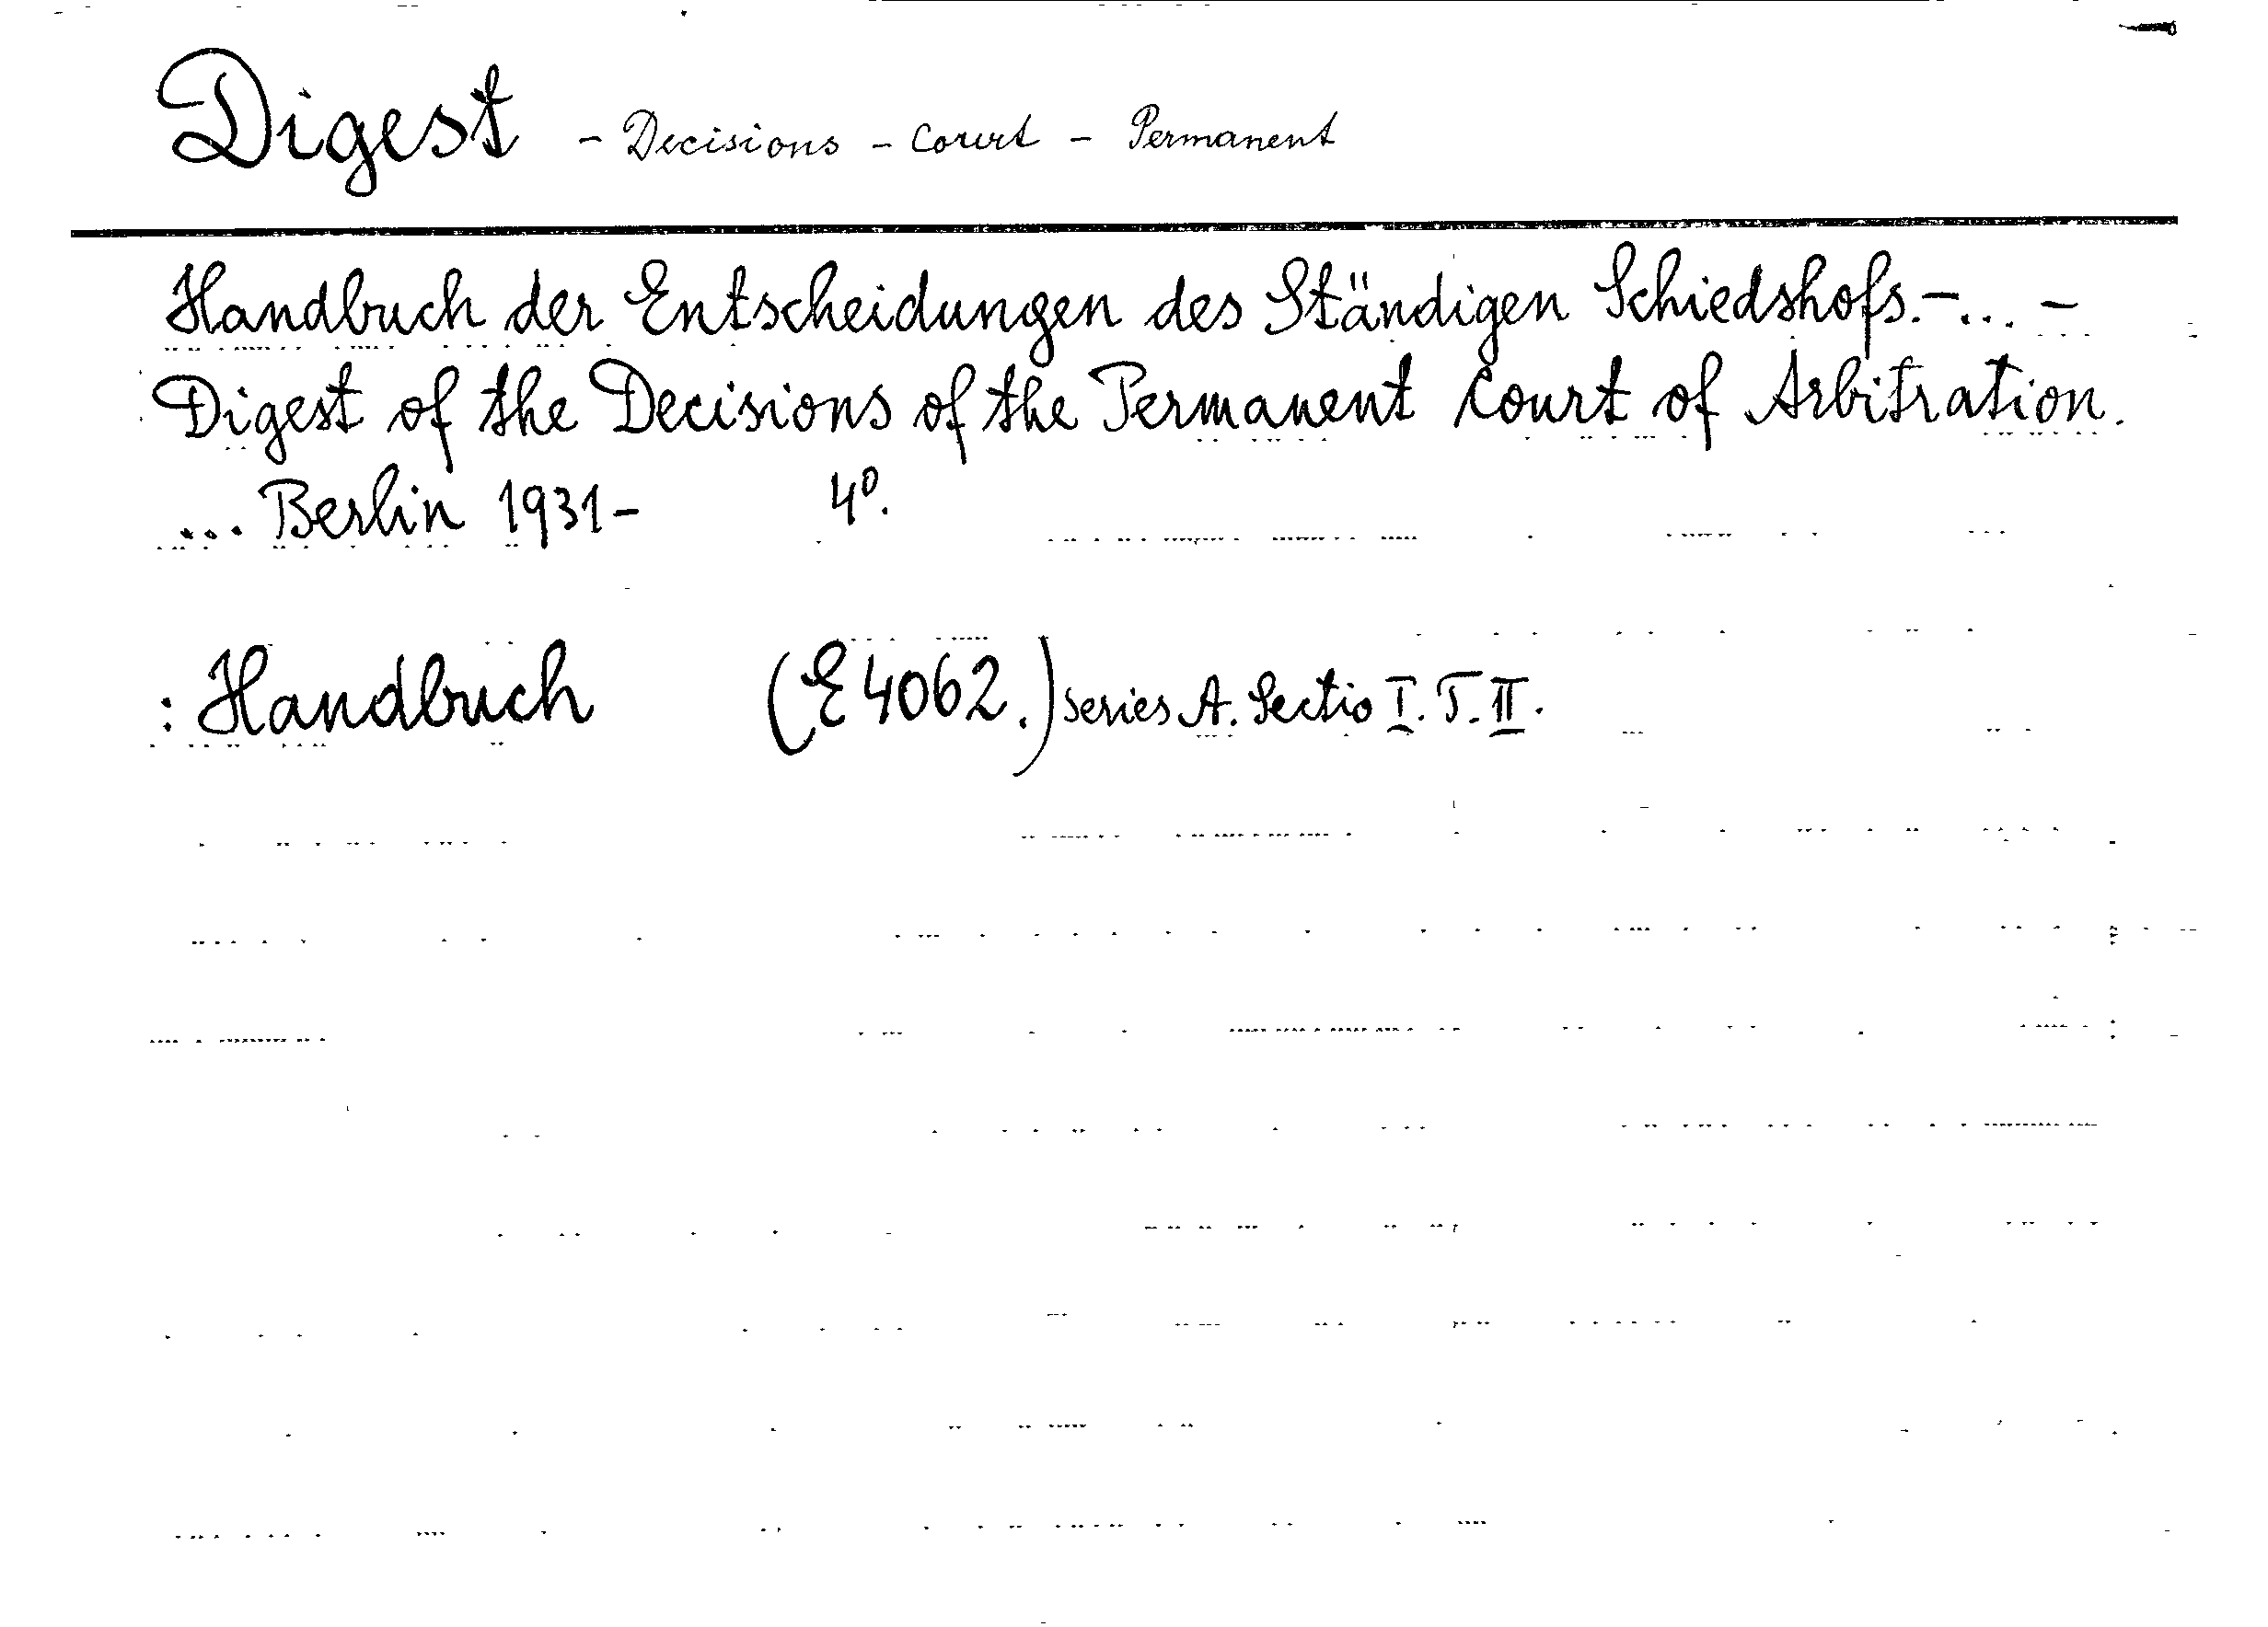 Digest - Decisions - Court - Permanent
Handbuch der Entscheidungen des Ständigen Schiedshofs.-... -
Digest of the Decisions of the Permanent Court of Arbitration.
... Berlin 1931- 4º.
: Handbuch (E 4062.) Series A. Sectio I. T. II.